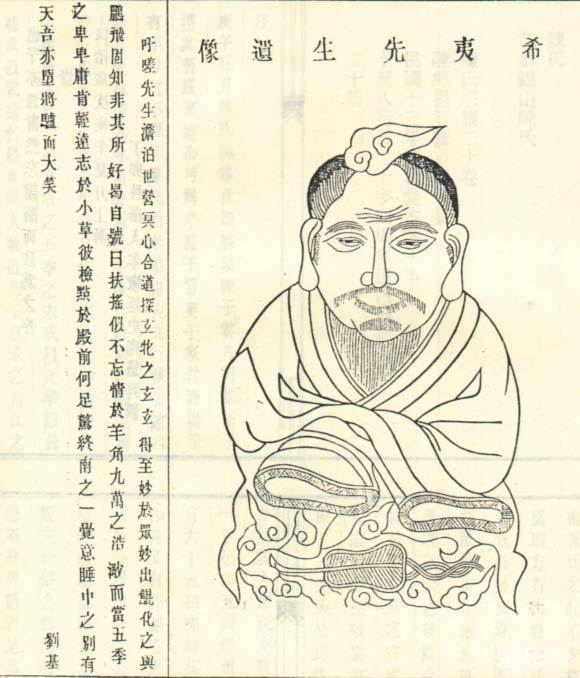 希夷先生遺像
吁嗟先生澹泊世營冥心合道探玄牝之玄玄得至妙於眾妙出鯤化之與
鵬飛固知非其所好曷自號曰扶搖似不忘情於羊角九萬之浩渺而當五季
之卑卑庸肯輕遠志於小草彼檢點於殿前何足驚終南之 覺意睡中之別有
天吾亦墮將驢而大笑
劉基